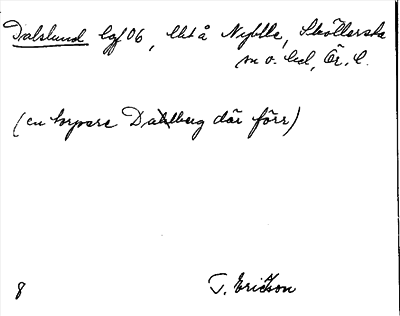 Dalslund lgf 06, lht å Nybble, Sköllersta
sn o. hd, Är. l.
(en torpare Dahlberg där förr)
8 T. Ericson